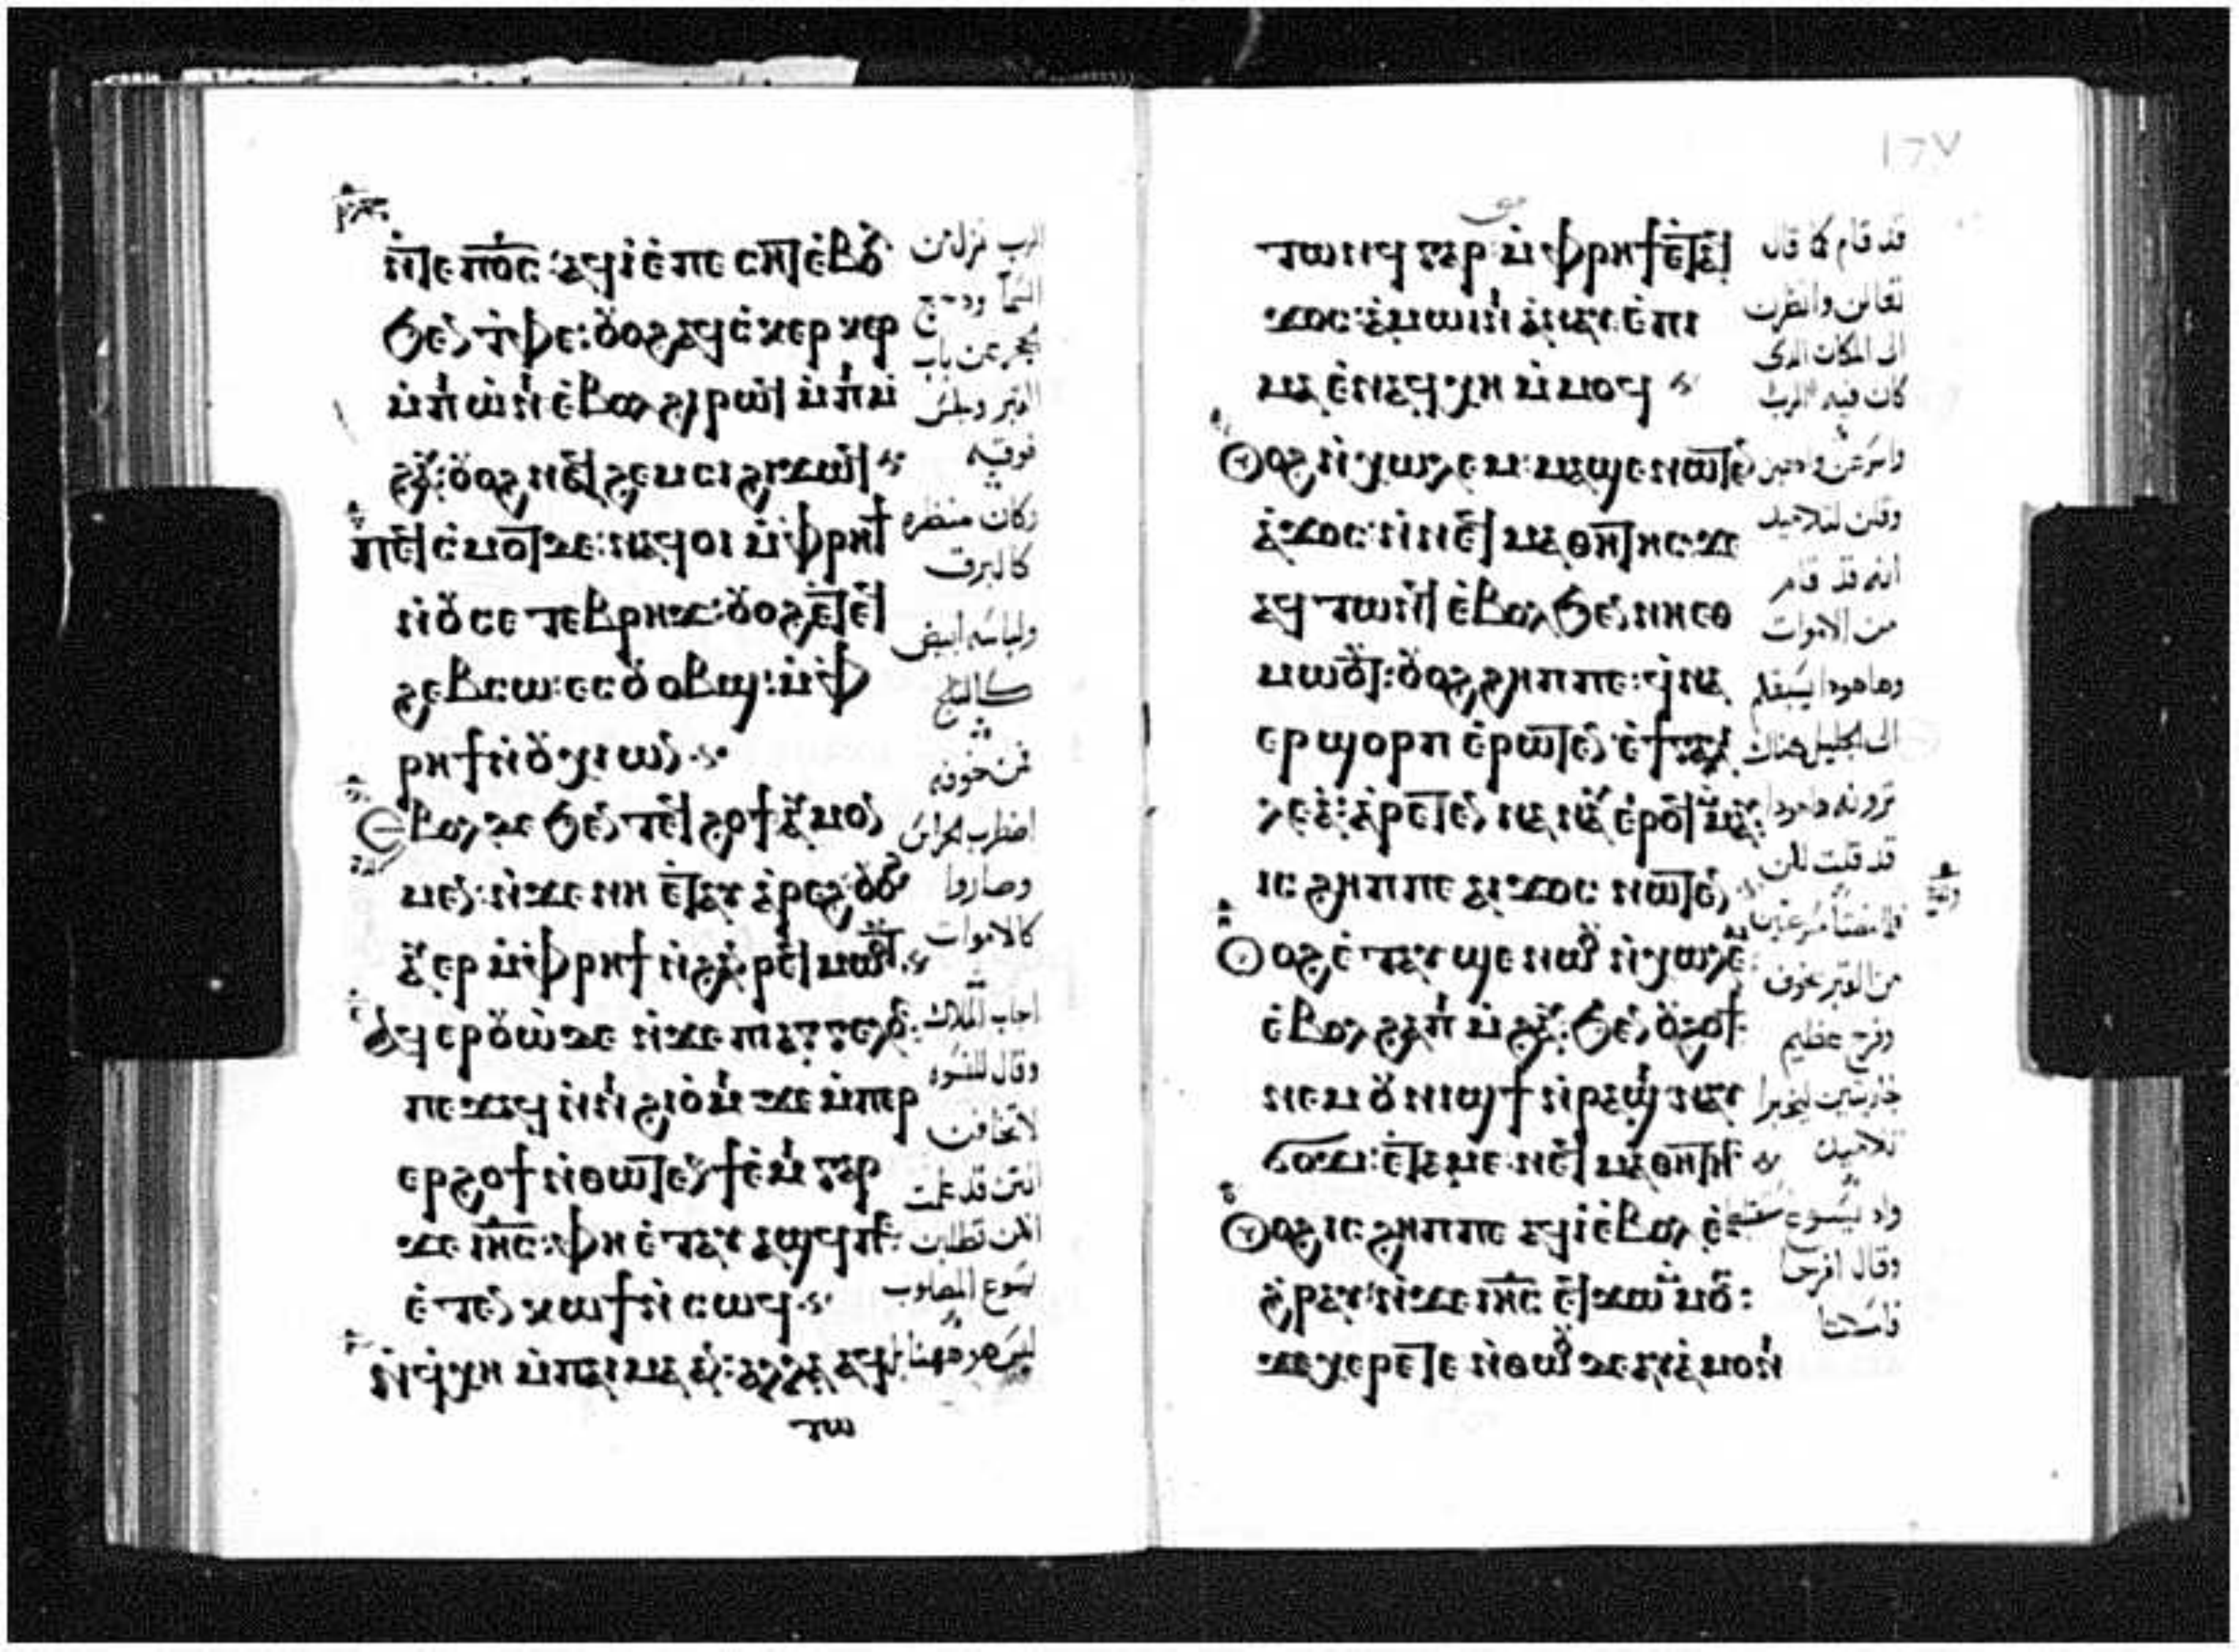 ⲛ̀ⲧⲉ ⲡⲟ̅ⲥ̅: ⲁϥⲓ̀ ⲉ̀ⲡⲉⲥⲏⲧ ⲉ̀ⲃⲟⲗ
ϧⲉⲛ ⲧ̀ⲫⲉ: ⲟⲩⲟϩ ⲁϥⲥ̀ⲕⲉⲣⲕⲉⲣ
ⲙ̀ⲡⲓⲱ̀ⲛⲓ ⲉ̀ⲃⲟⲗ ϩⲓⲣⲱϥ ⲙ̀ⲡⲓⲙ̀
ϩⲁⲩ: ⲟⲩⲟϩ ⲛⲁϥϩⲉⲙⲥⲓ ϩⲓϫⲱϥ
ⲡⲉϥⲥ̀ⲙⲟⲧ ⲇⲉ: ⲛⲁϥⲟⲓ ⲙ̀ⲫⲣⲏϯ
ⲛ̀ⲟⲩⲥⲉⲧⲉⲃⲣⲏϫ: ⲟⲩⲟϩ ⲧⲉϥ
ϩⲉⲃⲥⲱ: ⲉⲥⲟⲩⲟⲃϣ: ⲙ̀ⲫ
ⲣⲏϯ ⲛ̀ⲟⲩⲭⲓⲱⲛ
Ⲉⲃⲟⲗ ⲇⲉ ϧⲉⲛ ⲧⲉϥϩⲟϯ ⲁⲩⲙⲟⲛ
ⲙⲉⲛ: ⲛ̀ϫⲉ ⲛⲏ ⲉⲧⲁⲩ ⲁ̀ⲣⲉϩ: ⲟⲩⲟϩ
ⲁⲩⲉⲣ ⲙ̀ⲫⲣⲏϯ ⲛ̀ϩⲁⲛⲣⲉϥⲙⲱⲟⲩⲧ
Ⲁϥⲉⲣⲟⲩⲱ̀ ⲇⲉ ⲛ̀ϫⲉ ⲡⲓⲁⲅⲅⲉⲗⲟⲥ:
ⲡⲉϫⲁϥ ⲛ̀ⲛⲓϩⲓⲟ̀ⲙⲓ ϫⲉ ⲙ̀ⲡⲉⲣ
ⲉⲣϩⲟϯ ⲛ̀ⲑⲱⲧⲉⲛ ϯⲉ̀ⲙⲓ ⲅⲁⲣ
ϫⲉ ⲓⲏ̅ⲥ̅: ⲫⲏ ⲉ̀ⲧⲁⲩ ⲁϣϥ:
ⲉ̀ⲧⲉⲧⲉⲛⲕⲱϯ ⲛ̀ⲥⲱϥ
ⲛ̀ϥⲭⲏ ⲙ̀ⲡⲁⲓⲙⲁ ⲁⲛ: ⲁⲗⲗⲁ ⲁϥ
ⲧⲱ
الرب نزل من
السما ودحرج
الحجر عن باب
القبر وجلس
فوقيه
وكان منظره
كالبرق
ولباسه ابيض
كالثلج
فمن خوفه
اضطرب الحراس
وصاروا
كالاموات
اجاب الملاك
وقال للنسوه
لا تخافن
انتن قد علمت
انكن تطلبن
يسوع المصلوب
ليس هو ههنا بل
١٦٧
ⲧⲱⲛϥ ⲅⲁⲣ ⲙ̀ⲫⲣⲏϯ ⲉⲧⲁϥ
ϫⲟⲥ: ⲁ̀ⲙⲱⲓⲛⲓ ⲁ̀ⲛⲁⲩ ⲉ̀ⲡⲓ
ⲙⲁ ⲉ̀ⲛⲁϥⲭⲏ ⲙ̀ⲙⲟϥ
Ⲟⲩⲟϩ ⲛ̀ⲭⲱⲗⲉⲙ: ⲙⲁϣⲉⲛⲱⲧⲉⲛ
ⲁ̀ϫⲟⲥ: ⲛ̀ⲛⲉϥⲙⲁⲑⲏⲧⲏⲥ ϫⲉ
ⲁϥⲧⲱⲛϥ ⲉ̀ⲃⲟⲗ ϧⲉⲛ ⲛⲏⲉⲑ
ⲙⲱⲟⲩⲧ: ⲟⲩⲟϩ ϩⲏⲡⲡⲉ: ϥ̀ⲛⲁ
ⲉⲣϣⲟⲣⲡ ⲉ̀ⲣⲱⲧⲉⲛ ⲉ̀ϯⲅⲁⲗⲓ
ⲗⲉⲁ̀: ⲁ̀ⲣⲉⲧⲉⲛⲛⲁⲛⲁⲩ ⲉ̀ⲣⲟϥ ⲙ̀ⲙⲁⲩ:
ⲓⲥ ϩⲏⲡⲡⲉ ⲁⲓϫⲟⲥ ⲛⲱⲧⲉⲛ
Ⲟⲩⲟϩ ⲉ̀ⲧⲁⲩϣⲉⲛⲱⲟⲩ ⲛ̀ⲭⲱⲗⲉⲙ
ⲉ̀ⲃⲟⲗ ϩⲁ ⲡⲓⲙ̀ϩⲁⲩ: ϧⲉⲛ ⲟⲩϩⲟϯ
ⲛⲉⲙ ⲟⲩⲛⲓϣϯ ⲛ̀ⲣⲁϣⲓ ⲛⲁⲩ
ϭⲟϫⲓ: ⲉ̀ⲧⲁⲙⲉ ⲛⲉϥⲙⲁⲑⲏⲧⲏⲥ
Ⲟⲩⲟϩ ⲓⲥ ϩⲏⲡⲡⲉ ⲁϥⲓ̀ ⲉ̀ⲃⲟⲗ ⲉ̀
ϩ̀ⲣⲁⲩ: ⲛ̀ϫⲉ ⲓⲏ̅ⲥ̅ ⲉϥϫⲱ ⲙ̀ⲙⲟⲥ:
ϫⲉ ⲭⲉⲣⲉⲧⲉ ⲛ̀ⲑⲱⲟⲩ ⲇⲉ ⲁⲩⲁ̀ⲙⲟⲛⲓ
قد قام كما قال
تعالين وانظرن
الى المكان الدى
كان فيه الرب
واسرعن واذهبن
وقلن لتلاميذه
انه قد قام
من الاموات
وها هودا يسبقكم
الى الجليل هناك
ترونه هاهودا
قد قلت لكن
فلما مضتا مسرعتين
من القبر بخوف
وفرح عظيم
جازيتين ليخبرا
تلاميذه
وقال افرحا
فامسكتا